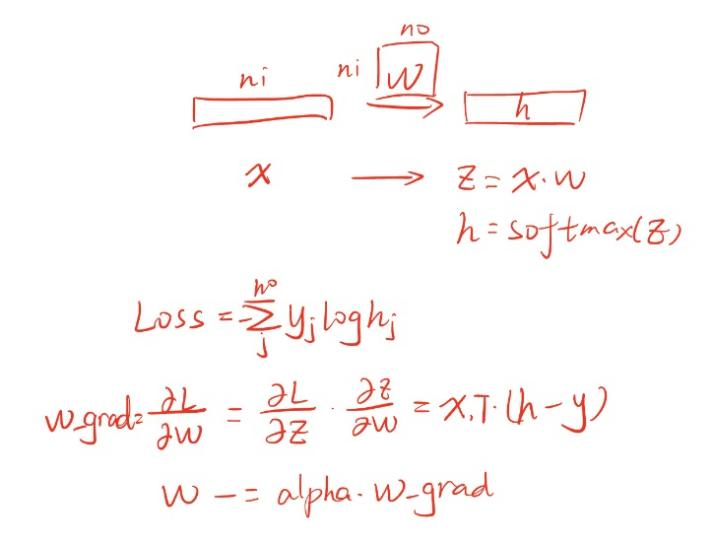 no
ni ni W
h
x → z = x·w
h = softmax(z)
Loss = -∑_j^{no} y_j log h_j
w_grad = ∂L/∂w = ∂L/∂z · ∂z/∂w = x.T·(h-y)
w -= alpha·w_grad